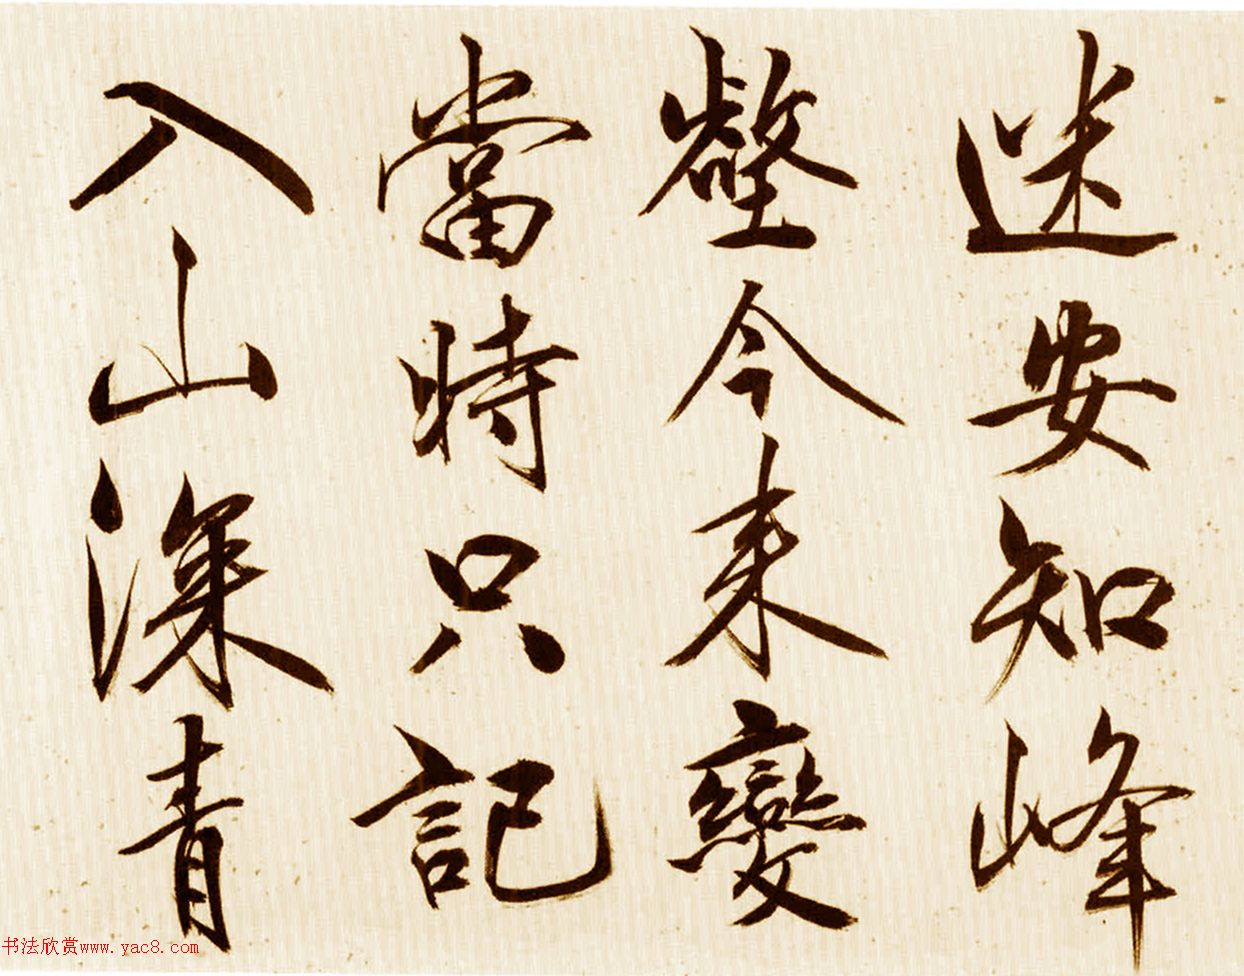 迷安知峰
壑今来變
當時只記
入山深青
书法欣赏www.yac8.com